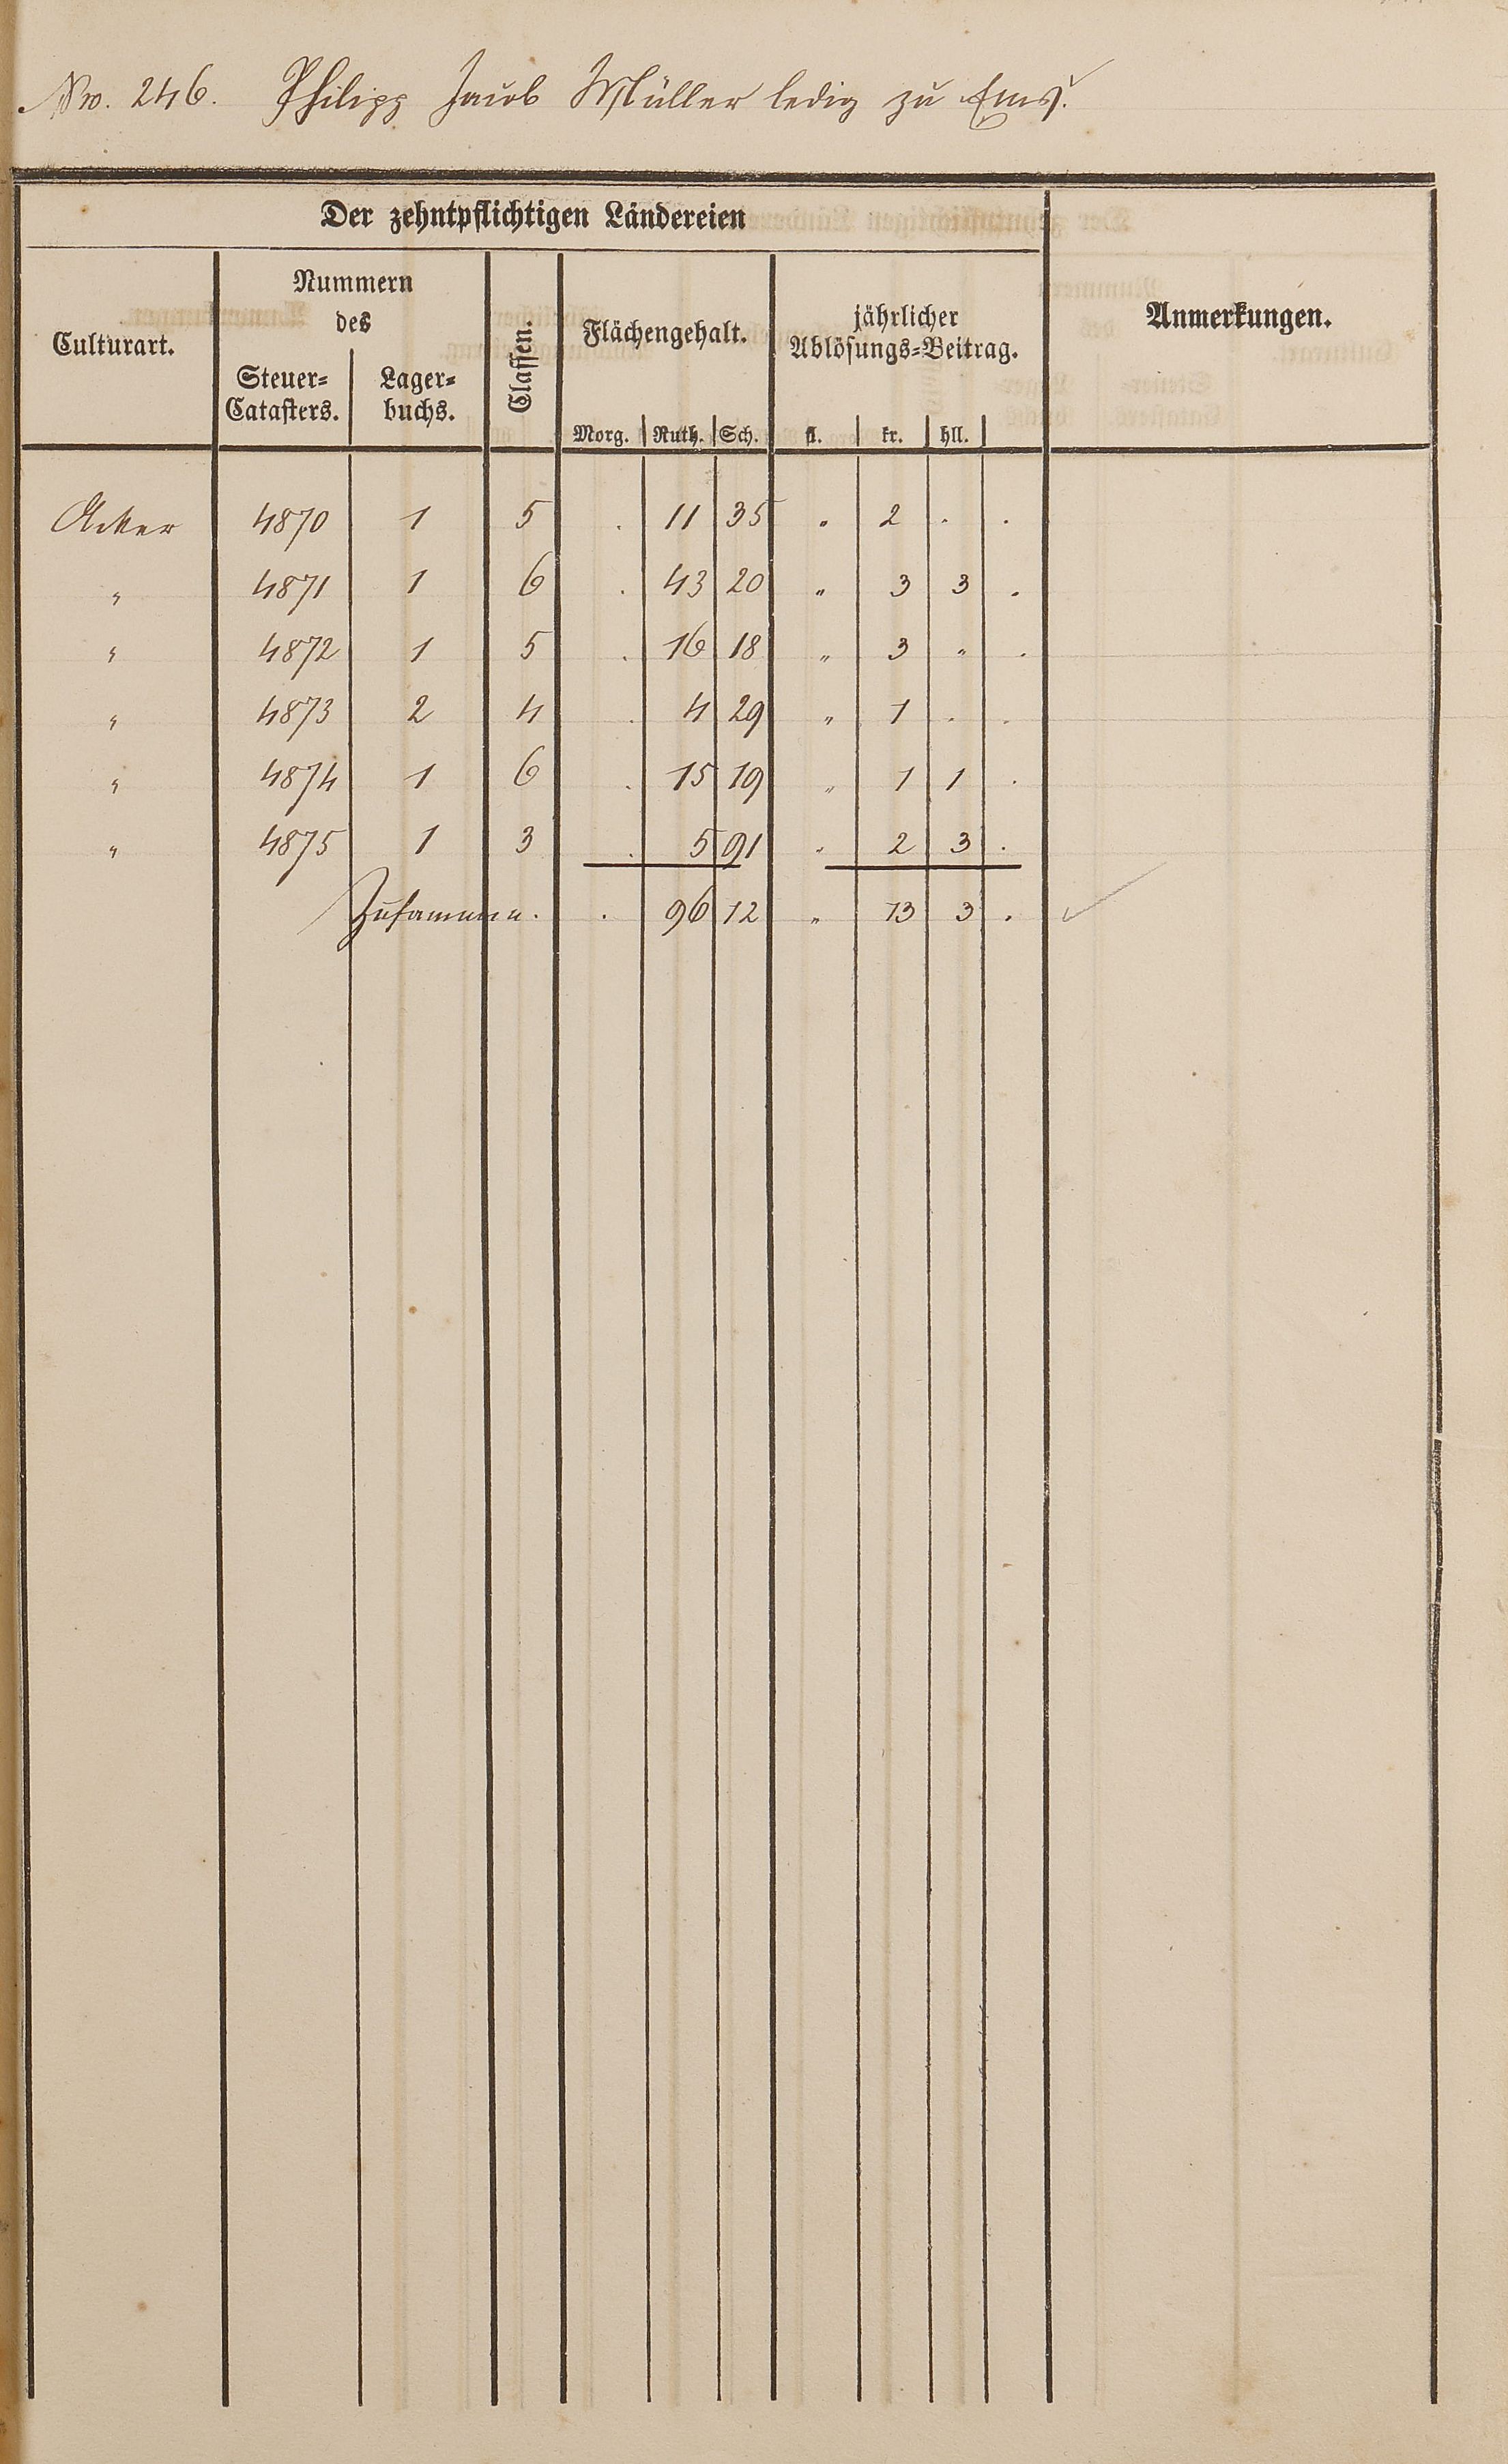 No. 246. Philipp Jacob Müller ledig zu Ems.
Der zehntpflichtigen Ländereien
Culturart.
Nummern
des
Steuer-
Catasters.
Lager-
buchs.
Classen.
Flächengehalt.
Morg. Ruth. Sch.
jährlicher
Ablösungs-Beitrag.
fl. kr. hll.
Anmerkungen.
Acker 4870 1 5 . 11 35 " 2 . .
" 4871 1 6 . 43 20 " 3 3 .
" 4872 1 5 . 16 18 " 3 " .
" 4873 2 4 . 4 29 " 1 . .
" 4874 1 6 . 15 19 " 1 1 .
" 4875 1 3 . 5 91 " 2 3 .
Zusammen. . 96 12 " 13 3 .